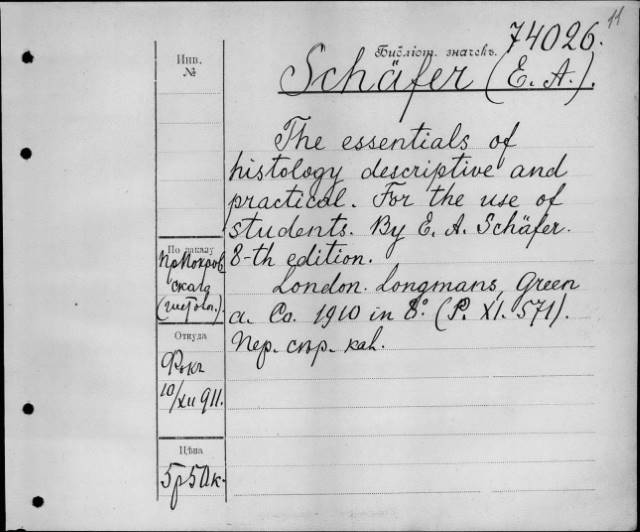 11
74026.
Библіот. значекъ.
Schäfer (E. A.).
Инв.
№
The essentials of
histology descriptive and
practical. For the use of
students. By E. A. Schäfer.
8-th edition.
London. Longmans, Green
a. Co. 1910 in 8° (P. XI. 571).
Пер. сѣр. кал.
По заказу
Пр Покров
скаго
(гистол.)
Откуда
10/XII 911.
Цѣна
5р 50к.